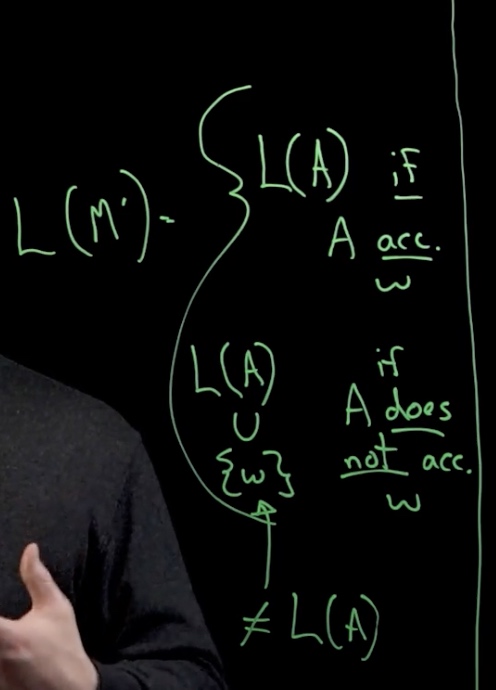 L(M') = { L(A) if
A acc.
w
L(A) if
∪ A does
{w} not acc.
w
≠ L(A)